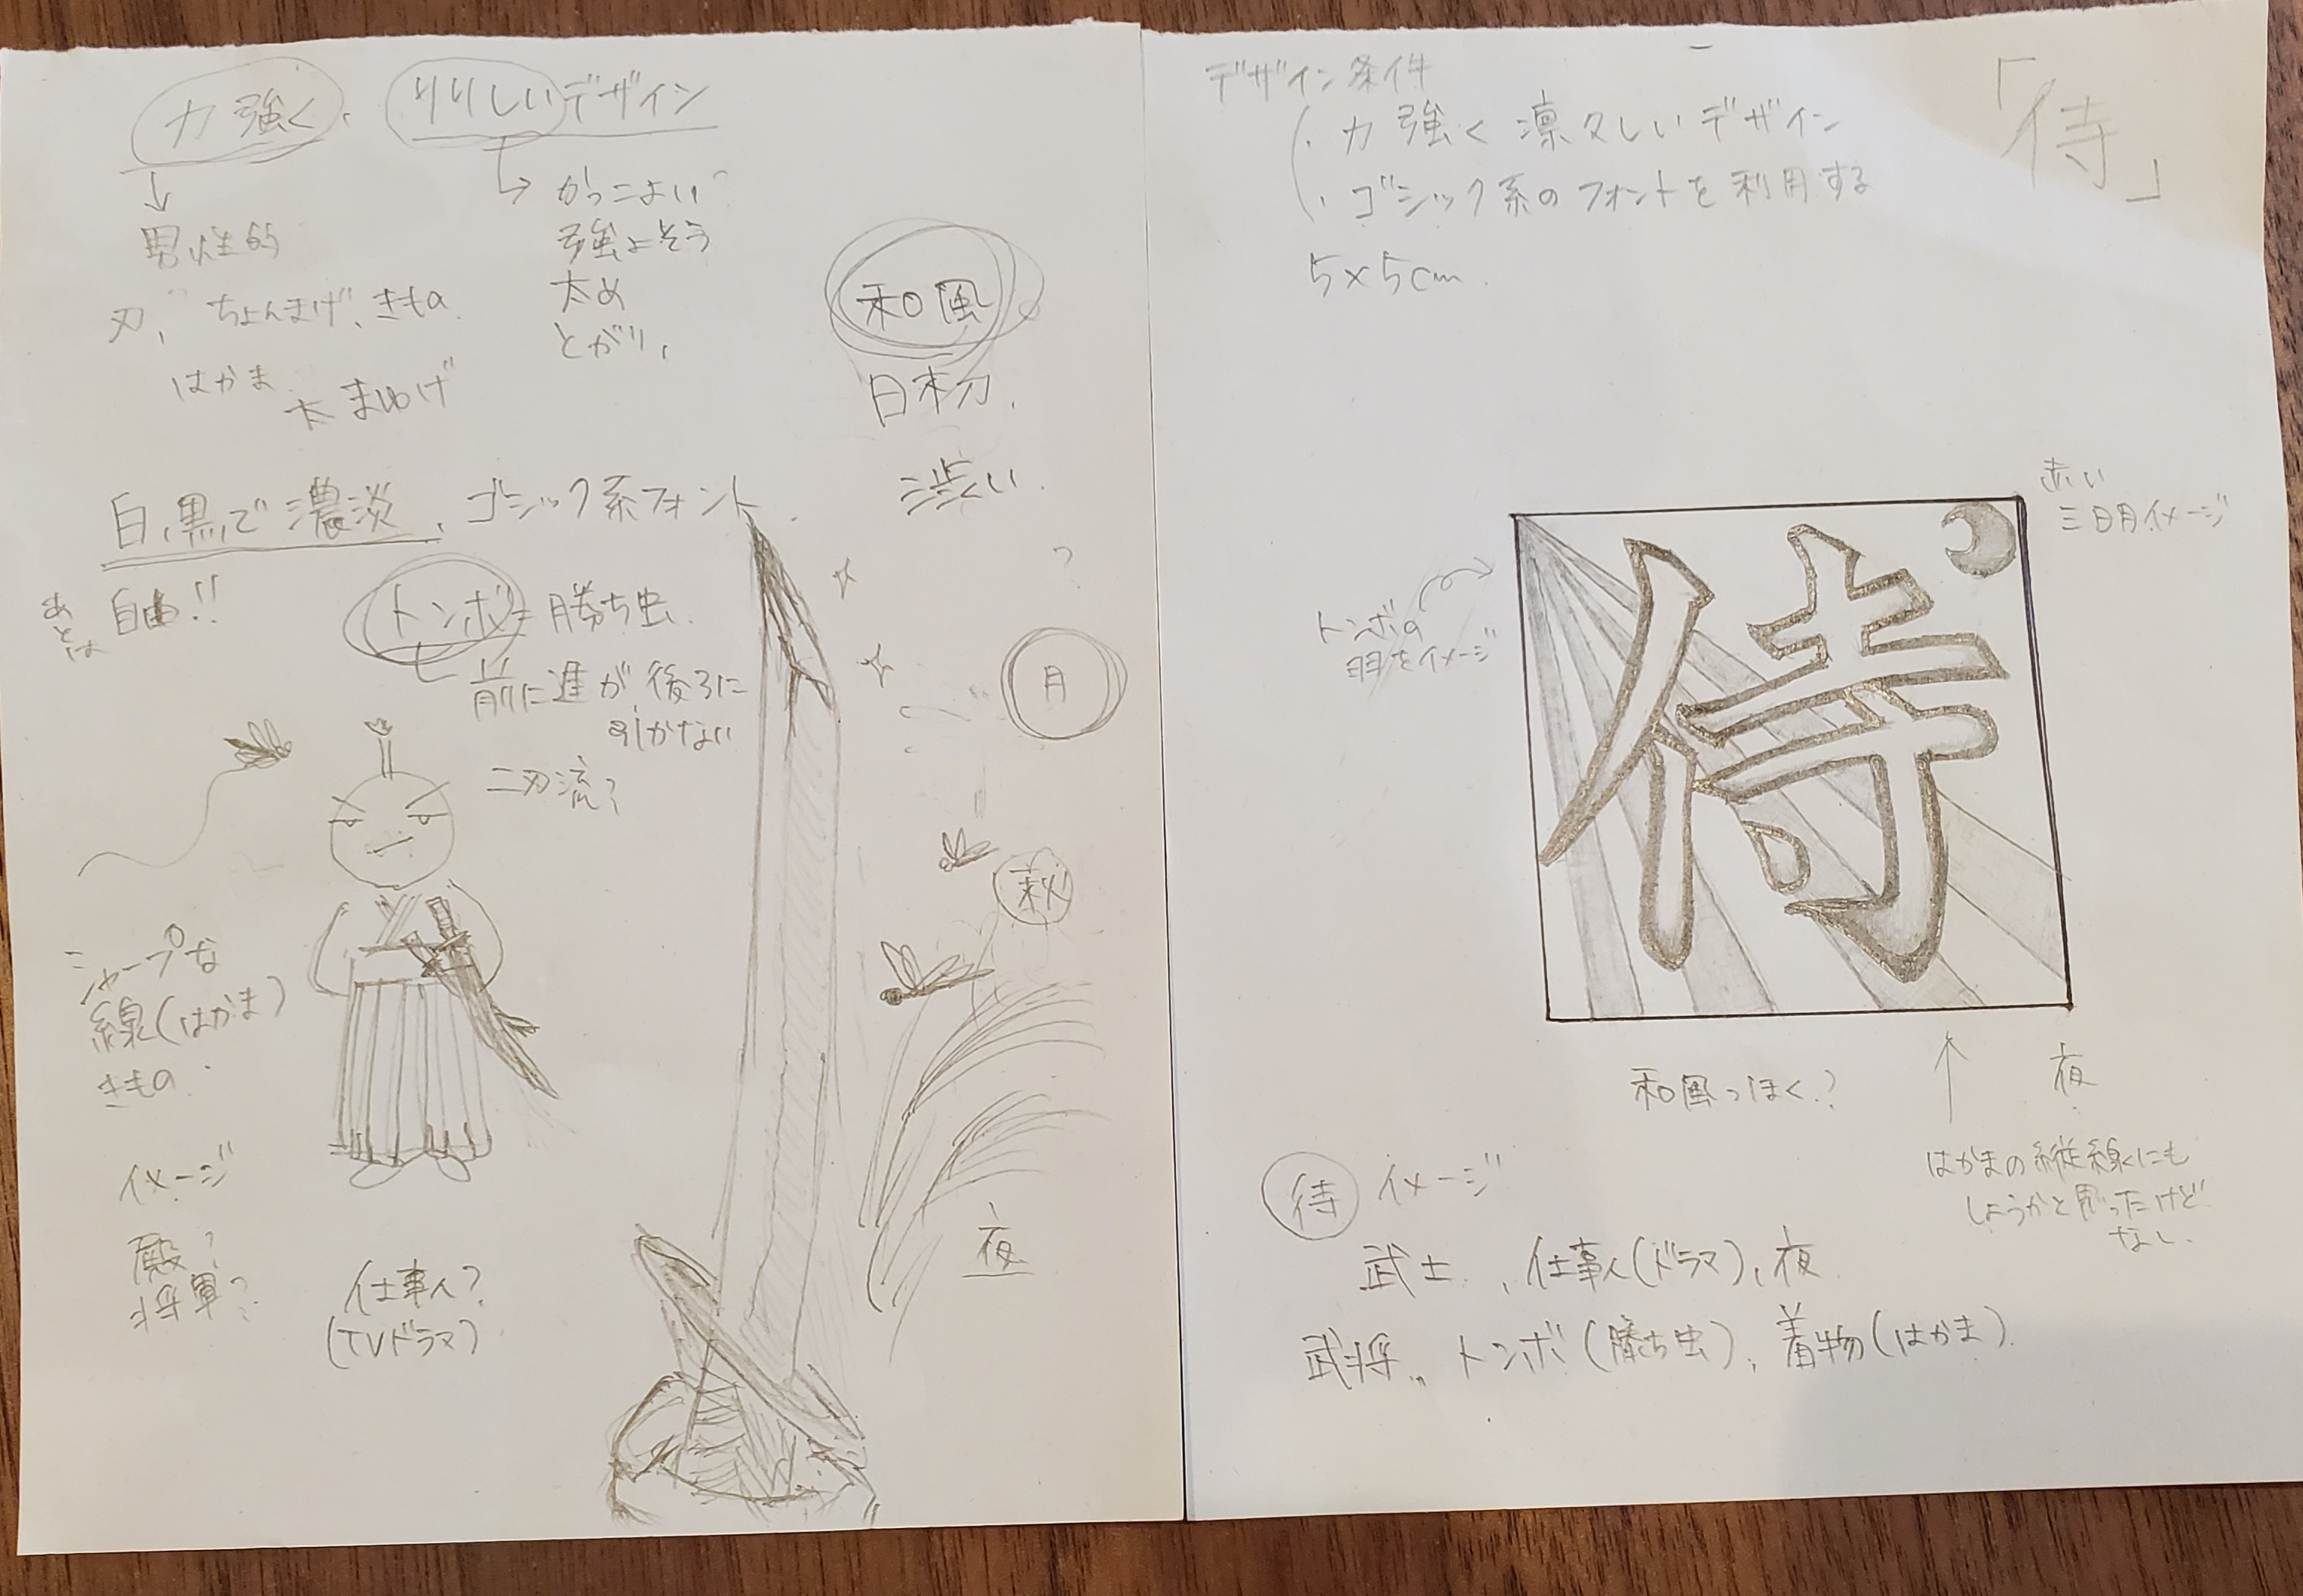 力強く、りりしいデザイン
↓
男性的
刃、ちょんまげ、きもの
はかま
太まゆげ
→かっこよい
強よそう
太め
とがり、
和風
日本刀、
渋い、
白、黒、で濃淡、ゴシック系フォント、
あとは自由!!
トンボ=勝ち虫
前に進が、後ろに
引かない
二刃流?
?
月
萩
シャープな
線(はかま)
きもの
イメージ
殿?
将軍?
仕事人?
(TVドラマ)
夜
デザイン条件
・力強く凛々しいデザイン
・ゴシック系のフォントを利用する
5×5cm
「侍」
赤い
三日月イメージ
トンボの
羽をイメージ
侍
和風っぽく?
夜
はかまの縦線にも
しようかと思ったけど
なし、
侍 イメージ
武士、仕事人(ドラマ)、夜
武将、トンボ(勝ち虫)、着物(はかま)